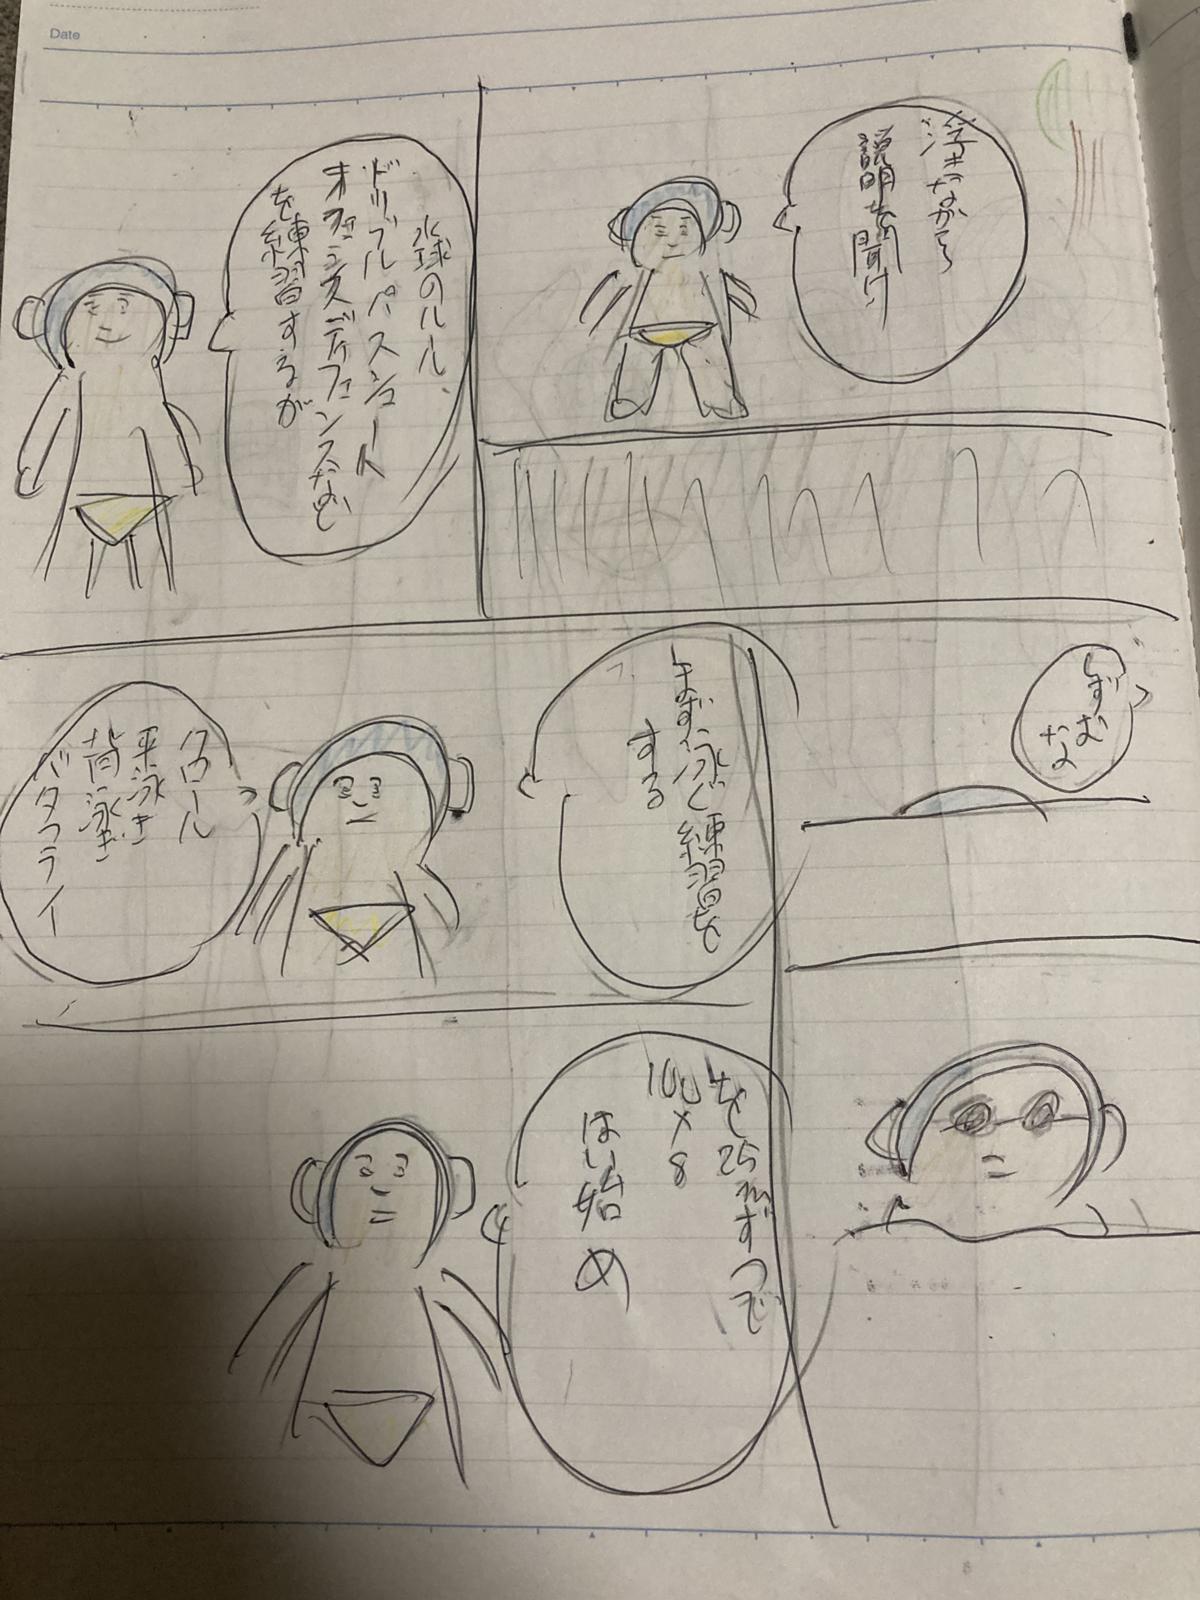 Date
浮きながら
説明を聞け
水球のルール、
ドリブルパスシュート
オフェンスディフェンスなど
を練習するが
しずむ
なよ
まず泳ぐ練習を
する
クロール
平泳き
背泳き
バタフライ
を25mずつで
100×8
はい始め